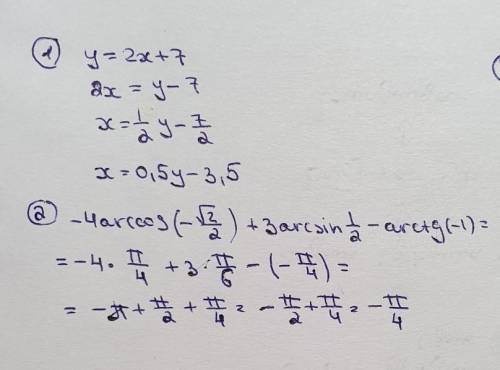 ① y = 2x + 7
2x = y - 7
x = 1/2 y - 7/2
x = 0,5y - 3,5
② -4arccos(-√2/2) + 3arcsin 1/2 - arctg(-1) =
= -4 · π/4 + 3 · π/6 - (-π/4) =
= -π + π/2 + π/4 = -π/2 + π/4 = -π/4